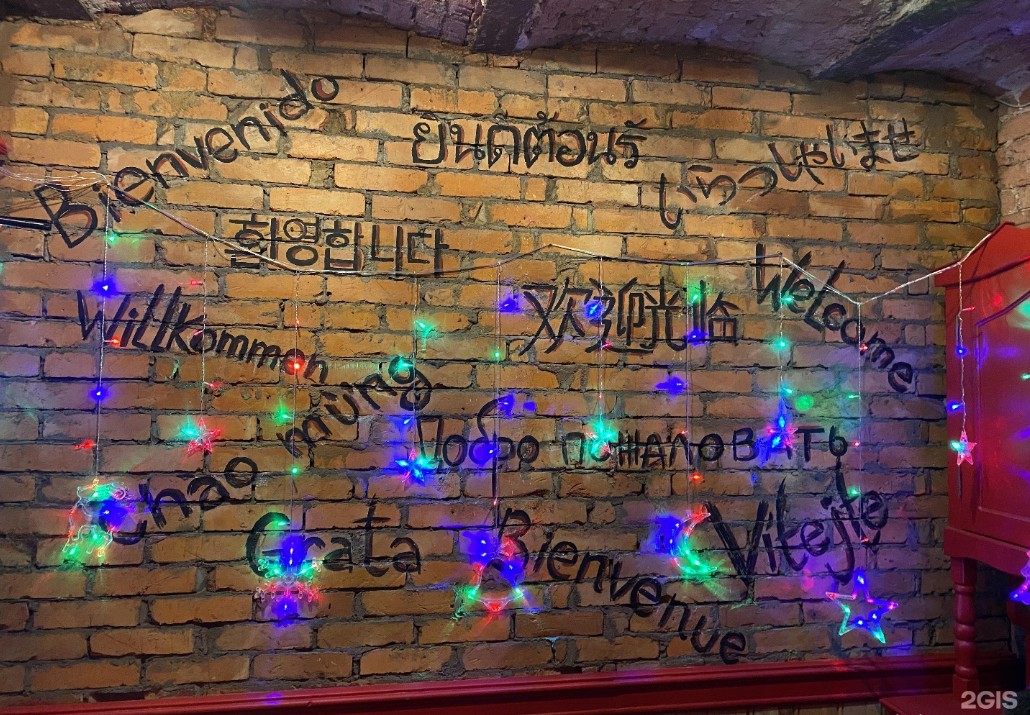 Bienvenido
ยินดีต้อนรับ
いらっしゃいませ
환영합니다
Willkommen
欢迎光临
Welcome!
Chao mừng
Добро пожаловать
Grata
Bienvenue
Vitejte
2GIS